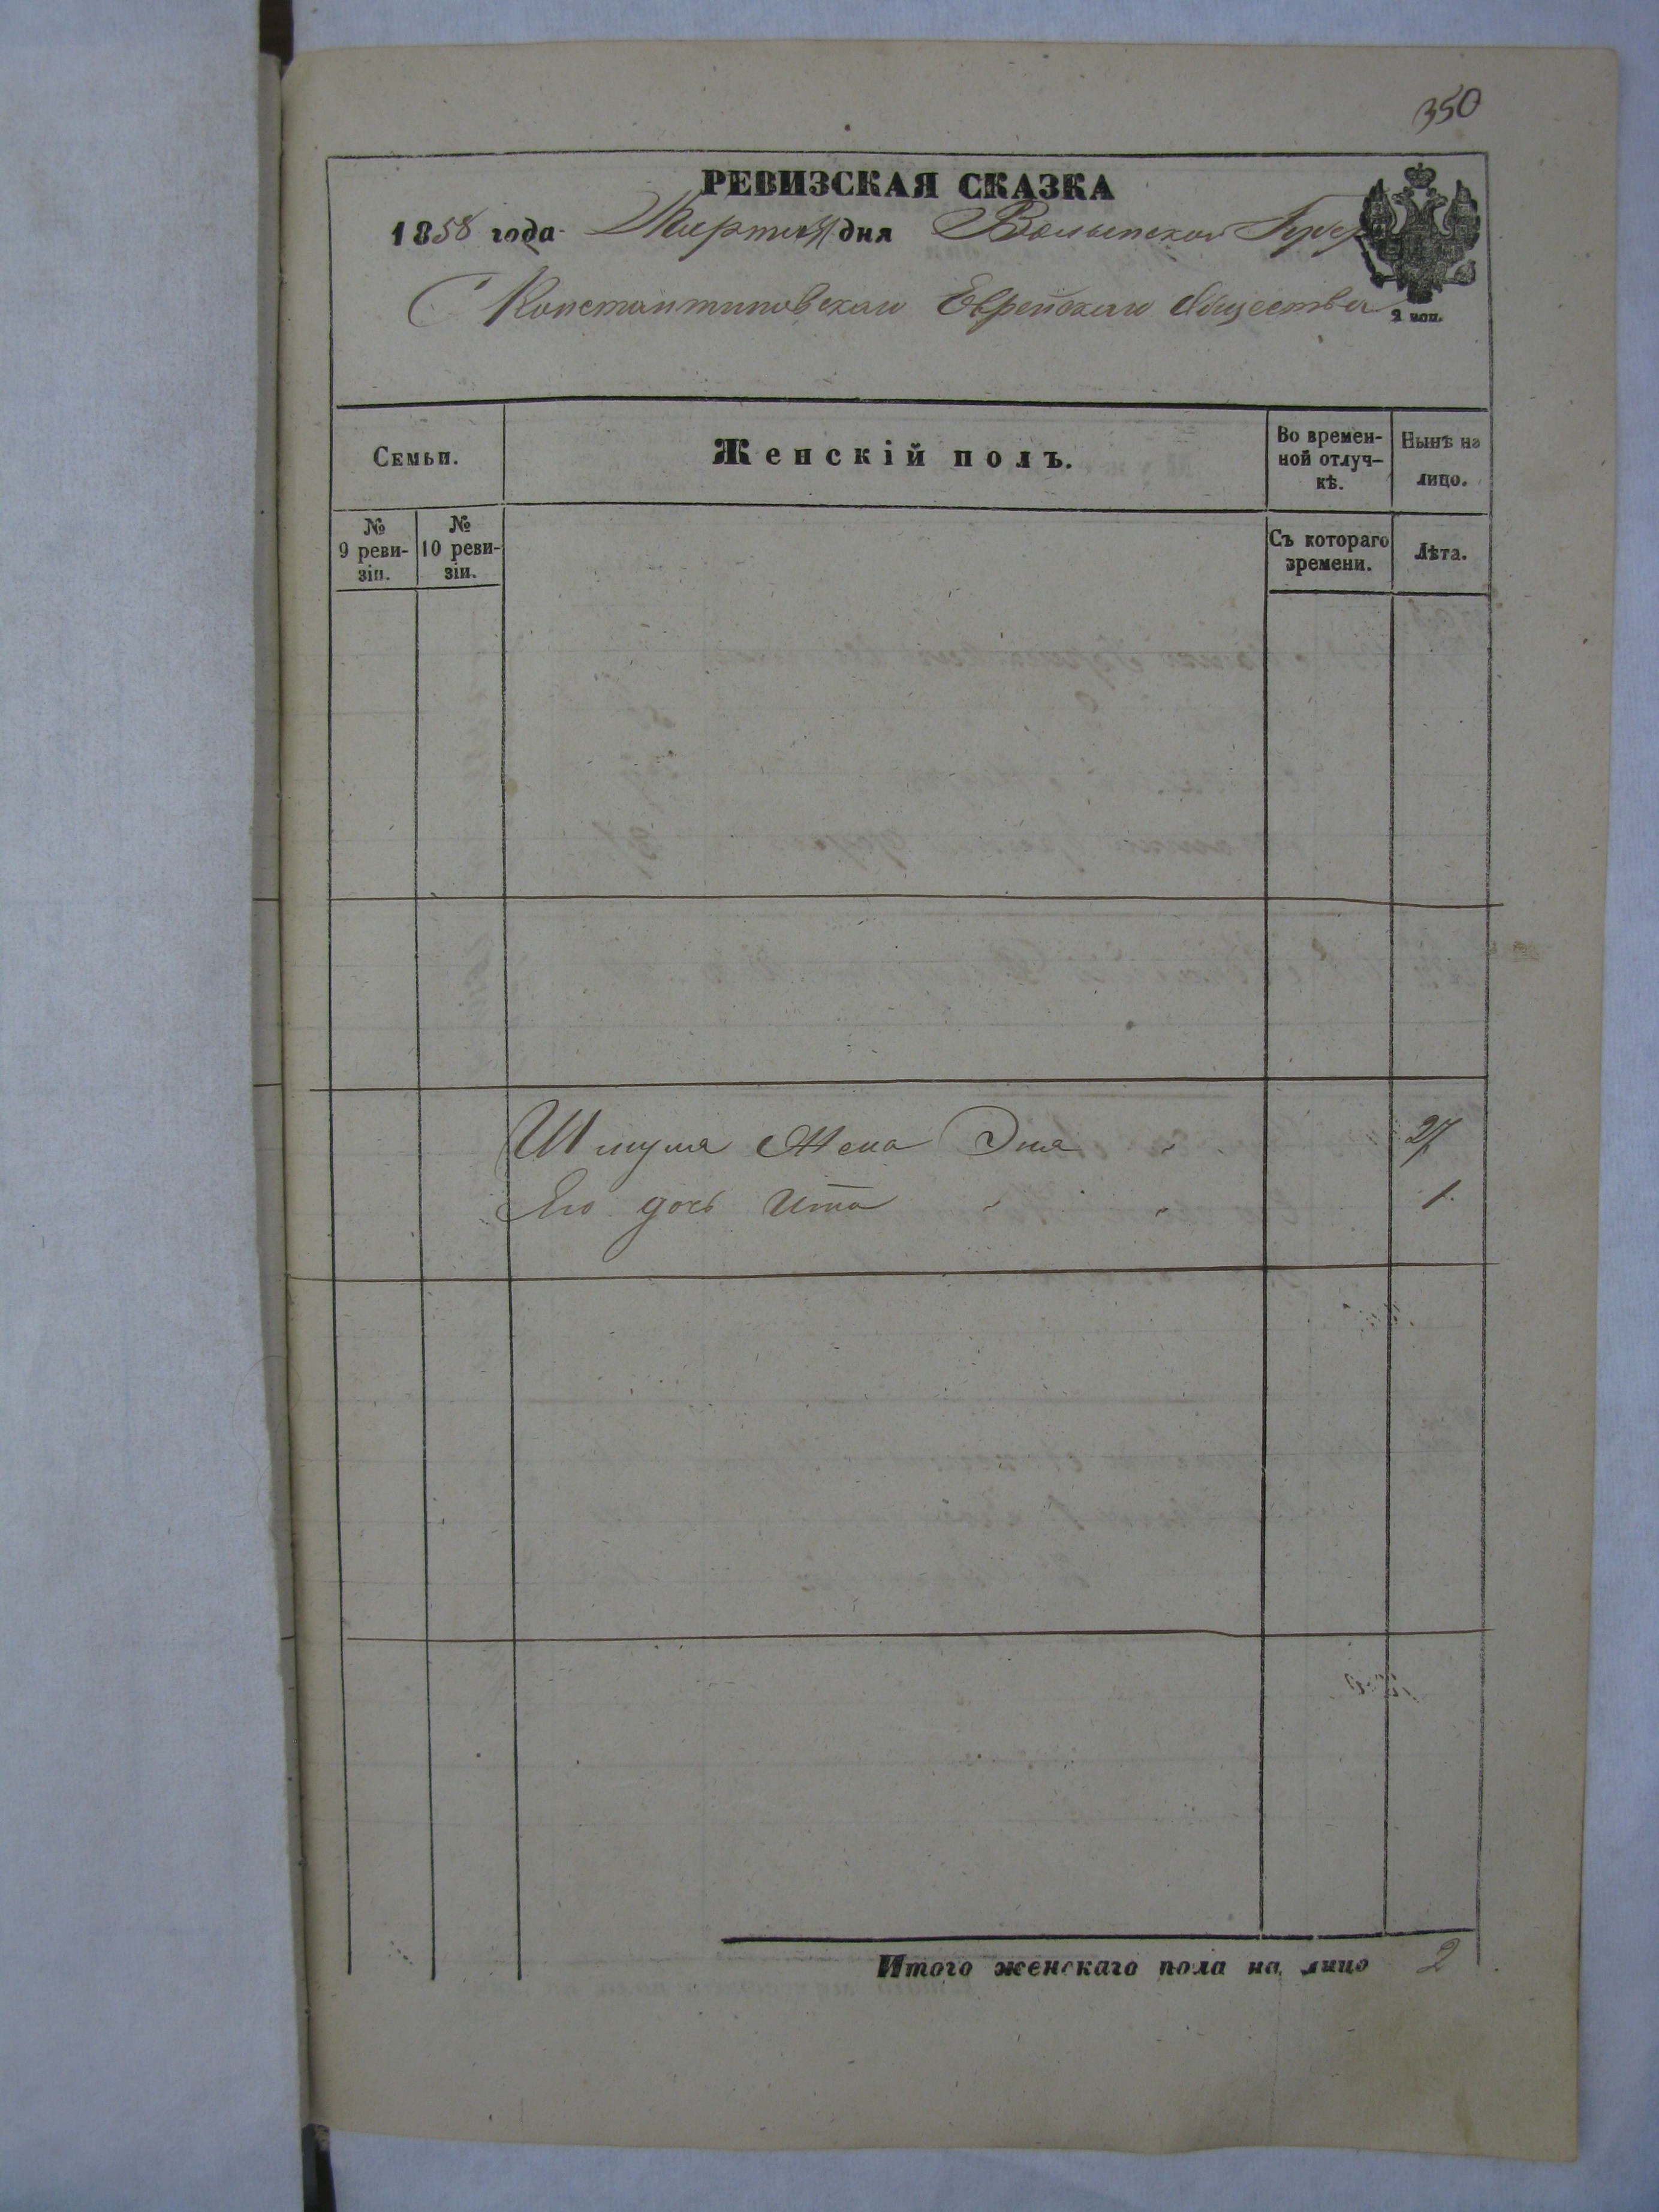 350
РЕВИЗСКАЯ СКАЗКА
1858 года Марта дня Волынской Губер
С Константиновскаго Еврейскаго Общества
2 коп.
Семьи.
Женскій полъ.
Во времен-
ной отлуч-
кѣ.
Нынѣ на
лицо.
№
9 реви-
зіи.
№
10 реви-
зіи.
Съ котораго
времени.
Лѣта.
Шмуля Жена Эня 27
Его дочь Ита 1
Итого женскаго пола на лицо 2